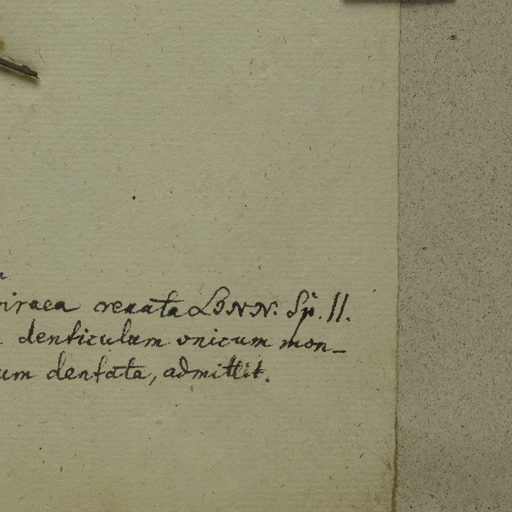 iraea crenata LINN. Sp. 11.
denticulum vnicum mon-
um dentata, admittit.